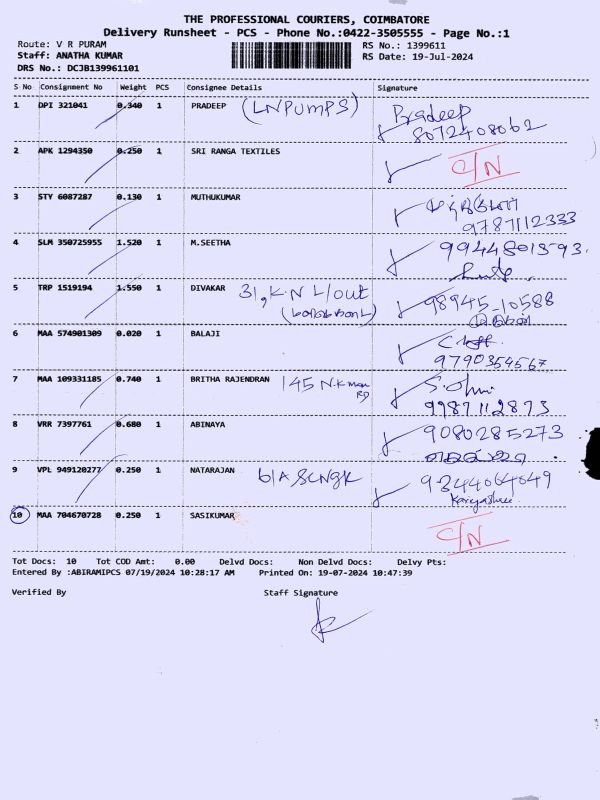 THE PROFESSIONAL COURIERS, COIMBATORE
Delivery Runsheet - PCS - Phone No.:0422-3505555 - Page No.:1
Route: V R PURAM
RS No.: 1399611
Staff: ANATHA KUMAR
RS Date: 19-Jul-2024
DRS No.: DCJB139961101
S No Consignment No Weight PCS Consignee Details Signature
1 DPI 321041 0.340 1 PRADEEP (LNPUMPS) Pradeep
8072408062
2 APK 1294350 0.250 1 SRI RANGA TEXTILES C/N
3 STY 6087287 0.130 1 MUTHUKUMAR
9787112333
4 SLM 350725955 1.520 1 M.SEETHA 9944801593.
5 TRP 1519194 1.550 1 DIVAKAR 31, K.N L/out 98945-10588
6 MAA 574901309 0.020 1 BALAJI
9790354567
7 MAA 109331185 0.740 1 BRITHA RAJENDRAN 145 N.K
9987112873
8 VRR 7397761 0.680 1 ABINAYA 9080285273
9 VPL 949120277 0.250 1 NATARAJAN 9344064049
10 MAA 704670728 0.250 1 SASIKUMAR C/N
Tot Docs: 10 Tot COD Amt: 0.00 Delvd Docs: Non Delvd Docs: Delvy Pts:
Entered By :ABIRAMIPCS 07/19/2024 10:28:17 AM Printed On: 19-07-2024 10:47:39
Verified By Staff Signature